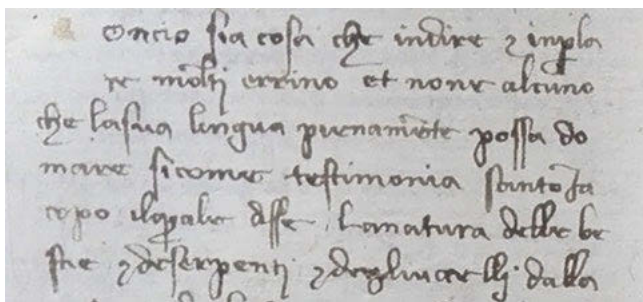 Oncio sia cosa che indire ⁊ inpla
re molti errino et none alcuno
che lasua lingua pienamẽte possa do
mare sicome testimonia santo Ja
copo ilqale disse. Lanatura delle be
stie ⁊ deserpenti ⁊ degliuccelli dalla